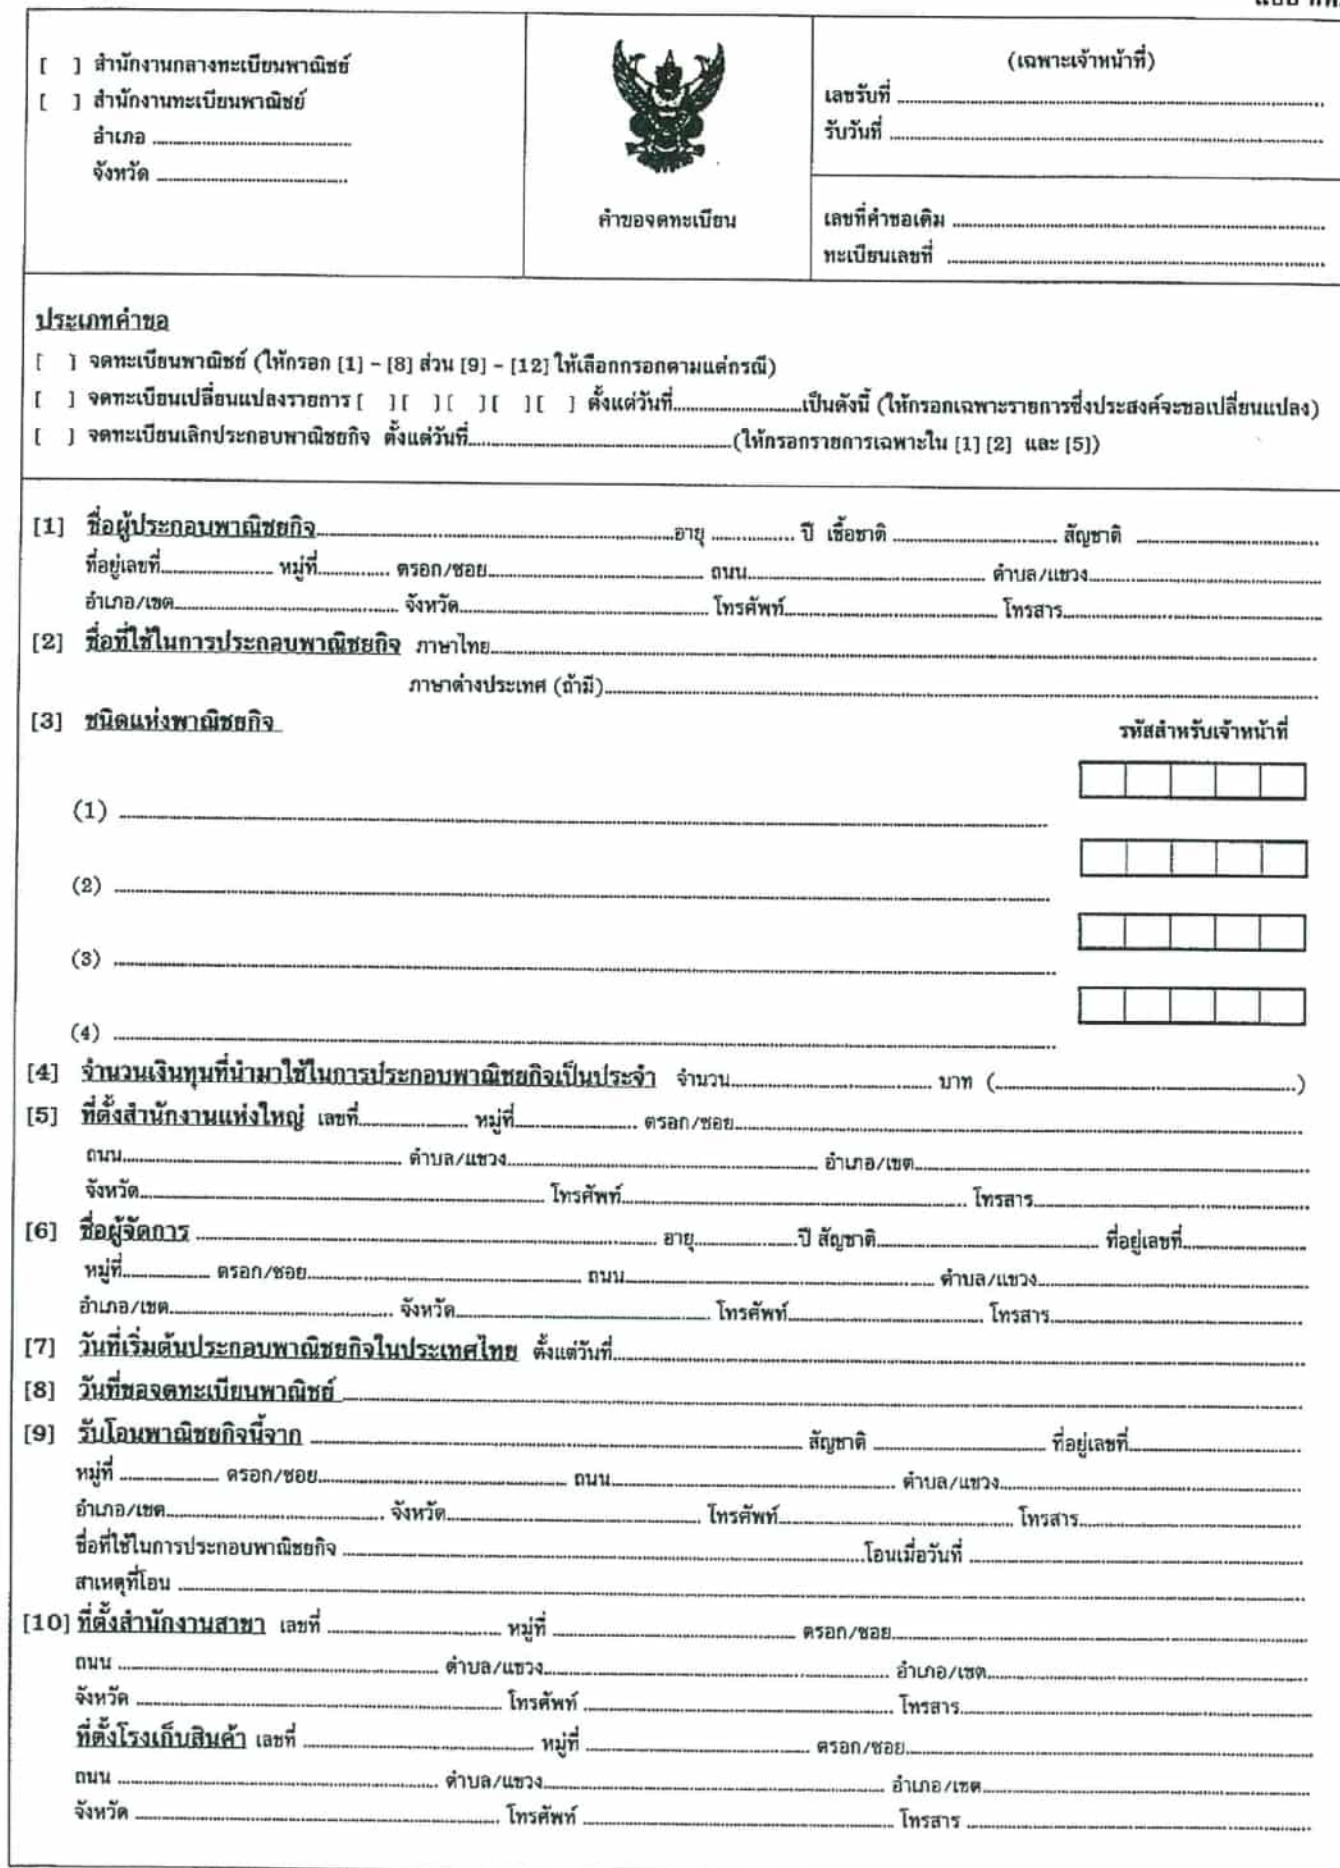 [ ] สำนักงานกลางทะเบียนพาณิชย์
[ ] สำนักงานทะเบียนพาณิชย์
อำเภอ ........................
จังหวัด ........................
คำขอจดทะเบียน
(เฉพาะเจ้าหน้าที่)
เลขรับที่ ........................
รับวันที่ ........................
เลขที่คำขอเดิม ........................
ทะเบียนเลขที่ ........................
ประเภทคำขอ
[ ] จดทะเบียนพาณิชย์ (ให้กรอก [1] - [8] ส่วน [9] - [12] ให้เลือกกรอกตามแต่กรณี)
[ ] จดทะเบียนเปลี่ยนแปลงรายการ [ ] [ ] [ ] [ ] [ ] ตั้งแต่วันที่................เป็นดังนี้ (ให้กรอกเฉพาะรายการซึ่งประสงค์จะขอเปลี่ยนแปลง)
[ ] จดทะเบียนเลิกประกอบพาณิชยกิจ ตั้งแต่วันที่................(ให้กรอกรายการเฉพาะใน [1] [2] และ [5])
[1] ชื่อผู้ประกอบพาณิชยกิจ................อายุ ........ ปี เชื้อชาติ ................ สัญชาติ ................
ที่อยู่เลขที่................ หมู่ที่........ ตรอก/ซอย................ ถนน................ ตำบล/แขวง................
อำเภอ/เขต................ จังหวัด................ โทรศัพท์................ โทรสาร................
[2] ชื่อที่ใช้ในการประกอบพาณิชยกิจ ภาษาไทย................
ภาษาต่างประเทศ (ถ้ามี)................
[3] ชนิดแห่งพาณิชยกิจ รหัสสำหรับเจ้าหน้าที่
(1) ................
(2) ................
(3) ................
(4) ................
[4] จำนวนเงินทุนที่นำมาใช้ในการประกอบพาณิชยกิจเป็นประจำ จำนวน................ บาท (................)
[5] ที่ตั้งสำนักงานแห่งใหญ่ เลขที่................ หมู่ที่................ ตรอก/ซอย................
ถนน................ ตำบล/แขวง................ อำเภอ/เขต................
จังหวัด................ โทรศัพท์................ โทรสาร................
[6] ชื่อผู้จัดการ ................ อายุ........ปี สัญชาติ................ ที่อยู่เลขที่................
หมู่ที่................ ตรอก/ซอย................ ถนน................ ตำบล/แขวง................
อำเภอ/เขต................ จังหวัด................ โทรศัพท์................ โทรสาร................
[7] วันที่เริ่มต้นประกอบพาณิชยกิจในประเทศไทย ตั้งแต่วันที่................
[8] วันที่ขอจดทะเบียนพาณิชย์ ................
[9] รับโอนพาณิชยกิจนี้จาก ................ สัญชาติ ................ ที่อยู่เลขที่................
หมู่ที่ ................ ตรอก/ซอย................ ถนน................ ตำบล/แขวง................
อำเภอ/เขต................ จังหวัด................ โทรศัพท์................ โทรสาร................
ชื่อที่ใช้ในการประกอบพาณิชยกิจ ................โอนเมื่อวันที่ ................
สาเหตุที่โอน ................
[10] ที่ตั้งสำนักงานสาขา เลขที่ ................ หมู่ที่ ................ ตรอก/ซอย................
ถนน ................ ตำบล/แขวง................ อำเภอ/เขต................
จังหวัด ................ โทรศัพท์ ................ โทรสาร................
ที่ตั้งโรงเก็บสินค้า เลขที่ ................ หมู่ที่ ................ ตรอก/ซอย................
ถนน ................ ตำบล/แขวง................ อำเภอ/เขต................
จังหวัด ................ โทรศัพท์ ................ โทรสาร ................